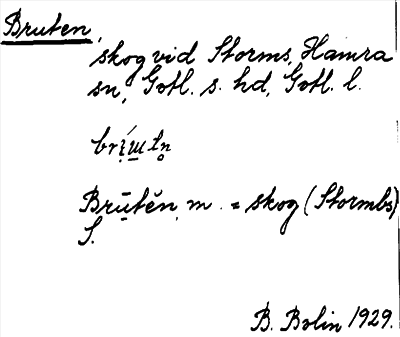 Bruten,
skog vid Storms, Hamra
sn, Gotl. s. hd, Gotl. l.
Brūtĕn, m. = skog (Stormbs)
S.
B. Bolin 1929.